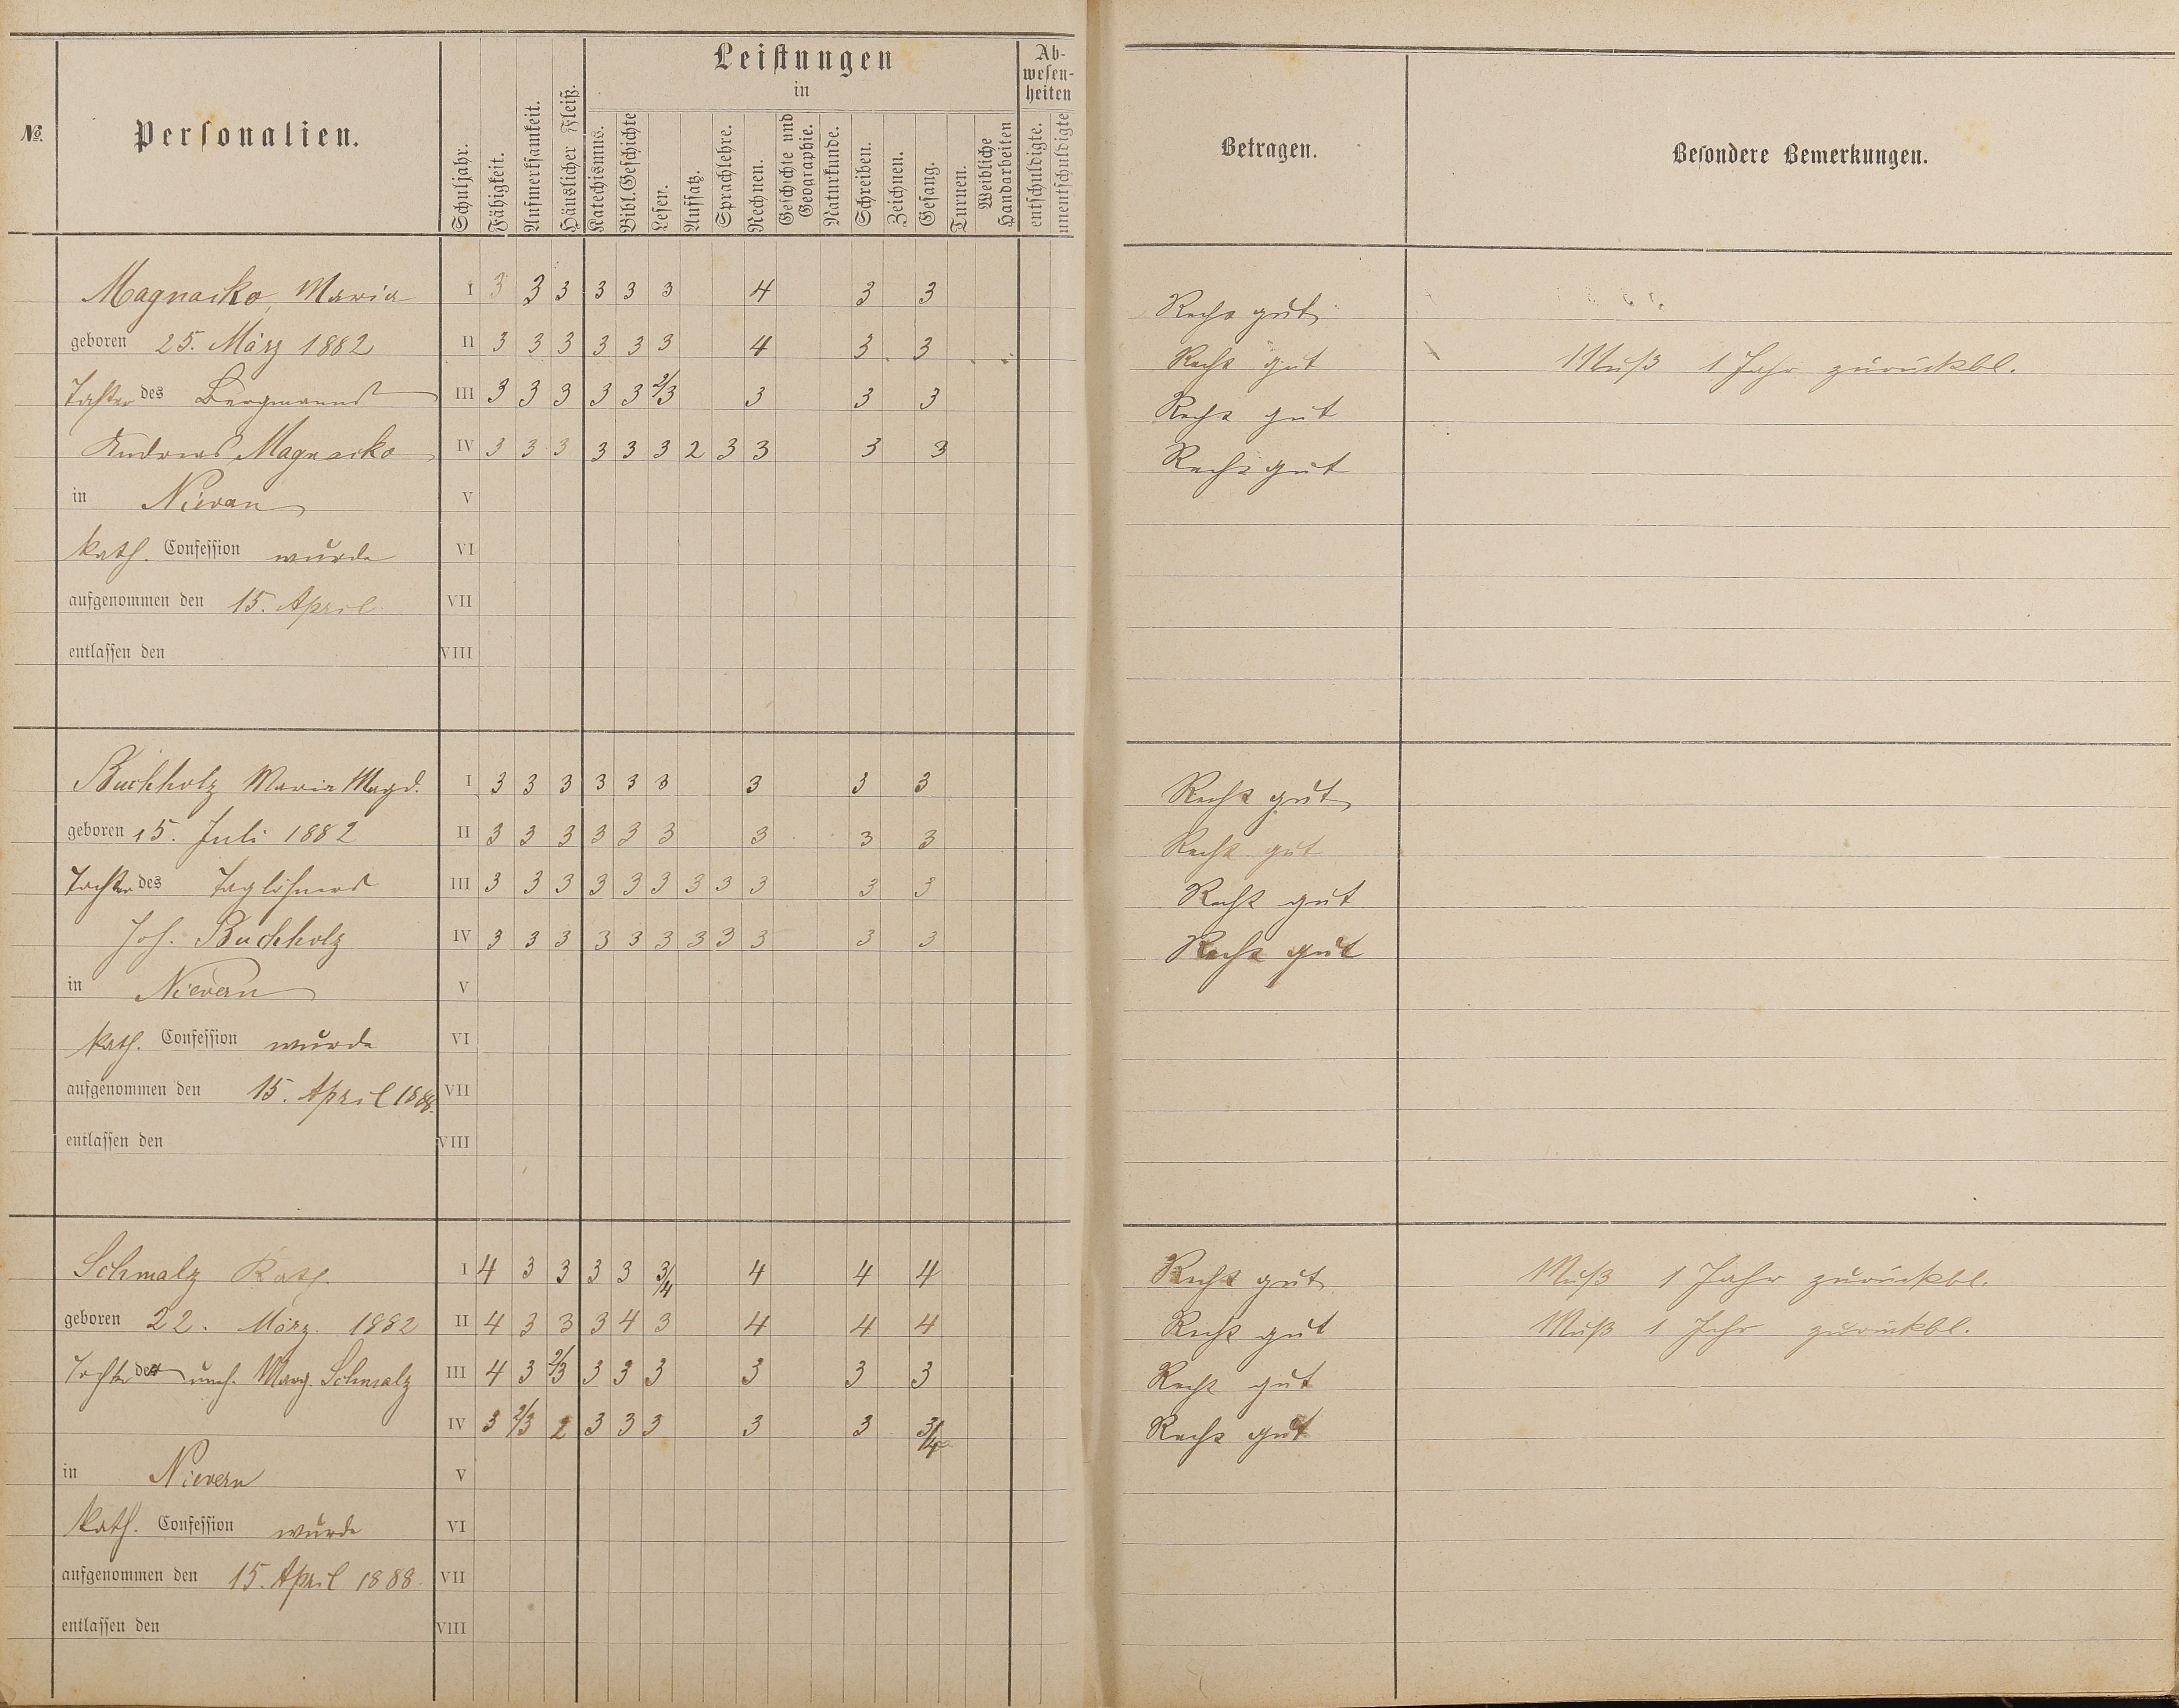 Leistungen
in
Ab-
wesen-
heiten
№
Personalien.
Schuljahr.
Fähigkeit.
Aufmerksamkeit.
Häuslicher Fleiß.
Katechismus.
Bibl. Geschichte
Lesen.
Aufsatz.
Sprachlehre.
Rechnen.
Geschichte und
Geographie.
Naturkunde.
Schreiben.
Zeichnen.
Gesang.
Turnen.
Weibliche
Handarbeiten
entschuldigte.
unentschuldigte
Betragen.
Besondere Bemerkungen.
Magnasko, Maria I 3 3 3 3 3 3 4 3 3 Recht gut
geboren 25. März 1882 II 3 3 3 3 3 3 4 3 3 Recht gut Muß 1 Jahr zurückbl.
Tochter des Bergmanns III 3 3 3 3 3 2/3 3 3 3 Recht gut
Andreas Magnasko IV 3 3 3 3 3 3 2 3 3 3 3 Recht gut
in Nievern V
kath. Confession wurde VI
aufgenommen den 15. April VII
entlassen den VIII
Buchholz Maria Magd. I 3 3 3 3 3 3 3 3 3 Recht gut
geboren 15. Juli 1882 II 3 3 3 3 3 3 3 3 3 Recht gut
Tochter des Taglöhners III 3 3 3 3 3 3 3 3 3 3 3 Recht gut
Joh. Buchholz IV 3 3 3 3 3 3 3 3 3 3 3 Recht gut
in Nievern V
kath. Confession wurde VI
aufgenommen den 15. April 1888. VII
entlassen den VIII
Schmalz Kath. I 4 3 3 3 3 3/4 4 4 4 Recht gut Muß 1 Jahr zurückbl.
geboren 22. März. 1882 II 4 3 3 3 4 3 4 4 4 Recht gut Muß 1 Jahr zurückbl.
Tochter der uneh. Marg. Schmalz III 4 3 2/3 3 3 3 3 3 3 Recht gut
IV 3 2/3 2 3 3 3 3 3 3/4 Recht gut
in Nievern V
kath. Confession wurde VI
aufgenommen den 15. April 1888. VII
entlassen den VIII